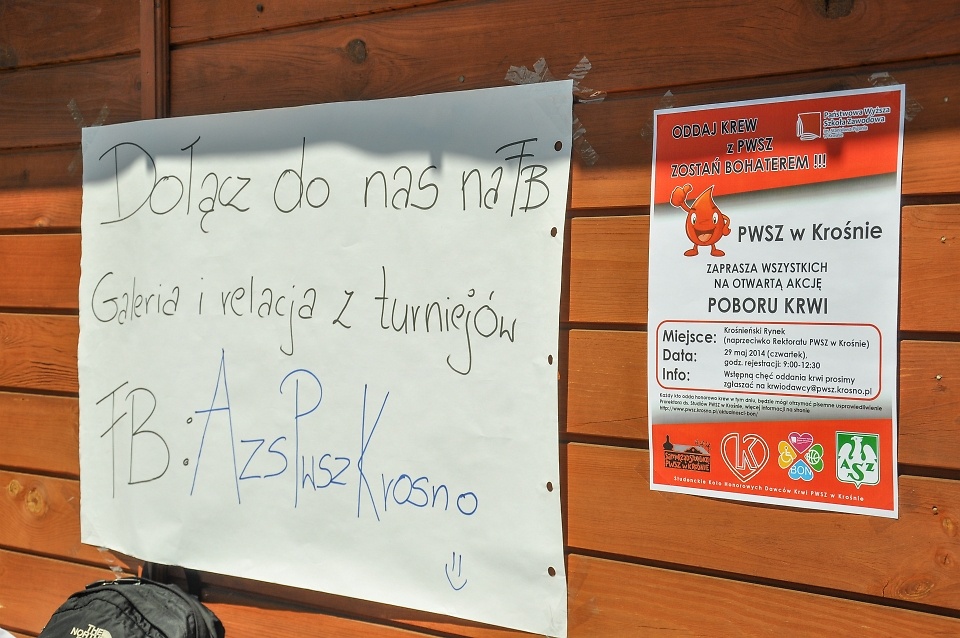 Dołącz do nas na FB
Galeria i relacja z turniejów
FB: AzsPwszKrosno
ODDAJ KREW
z PWSZ
ZOSTAŃ BOHATEREM !!!
Państwowa Wyższa
Szkoła Zawodowa
PWSZ w Krośnie
ZAPRASZA WSZYSTKICH
NA OTWARTĄ AKCJĘ
POBORU KRWI
Miejsce: Krośnieński Rynek
(naprzeciwko Rektoratu PWSZ w Krośnie)
Data: 29 maj 2014 (czwartek),
godz. rejestracji: 9:00-12:30
Info: Wstępną chęć oddania krwi prosimy
zgłaszać na krwiodawcy@pwsz.krosno.pl
Każdy kto odda honorowo krew w tym dniu, będzie mógł otrzymać pisemne usprawiedliwienie
Prorektora ds. Studiów PWSZ w Krośnie, więcej informacji na stronie
http://www.pwsz.krosno.pl/aktualnosci-bon/
PWSZ w KROŚNIE
BON
AZS
Studenckie Koło Honorowych Dawców Krwi PWSZ w Krośnie
THE
NORTH